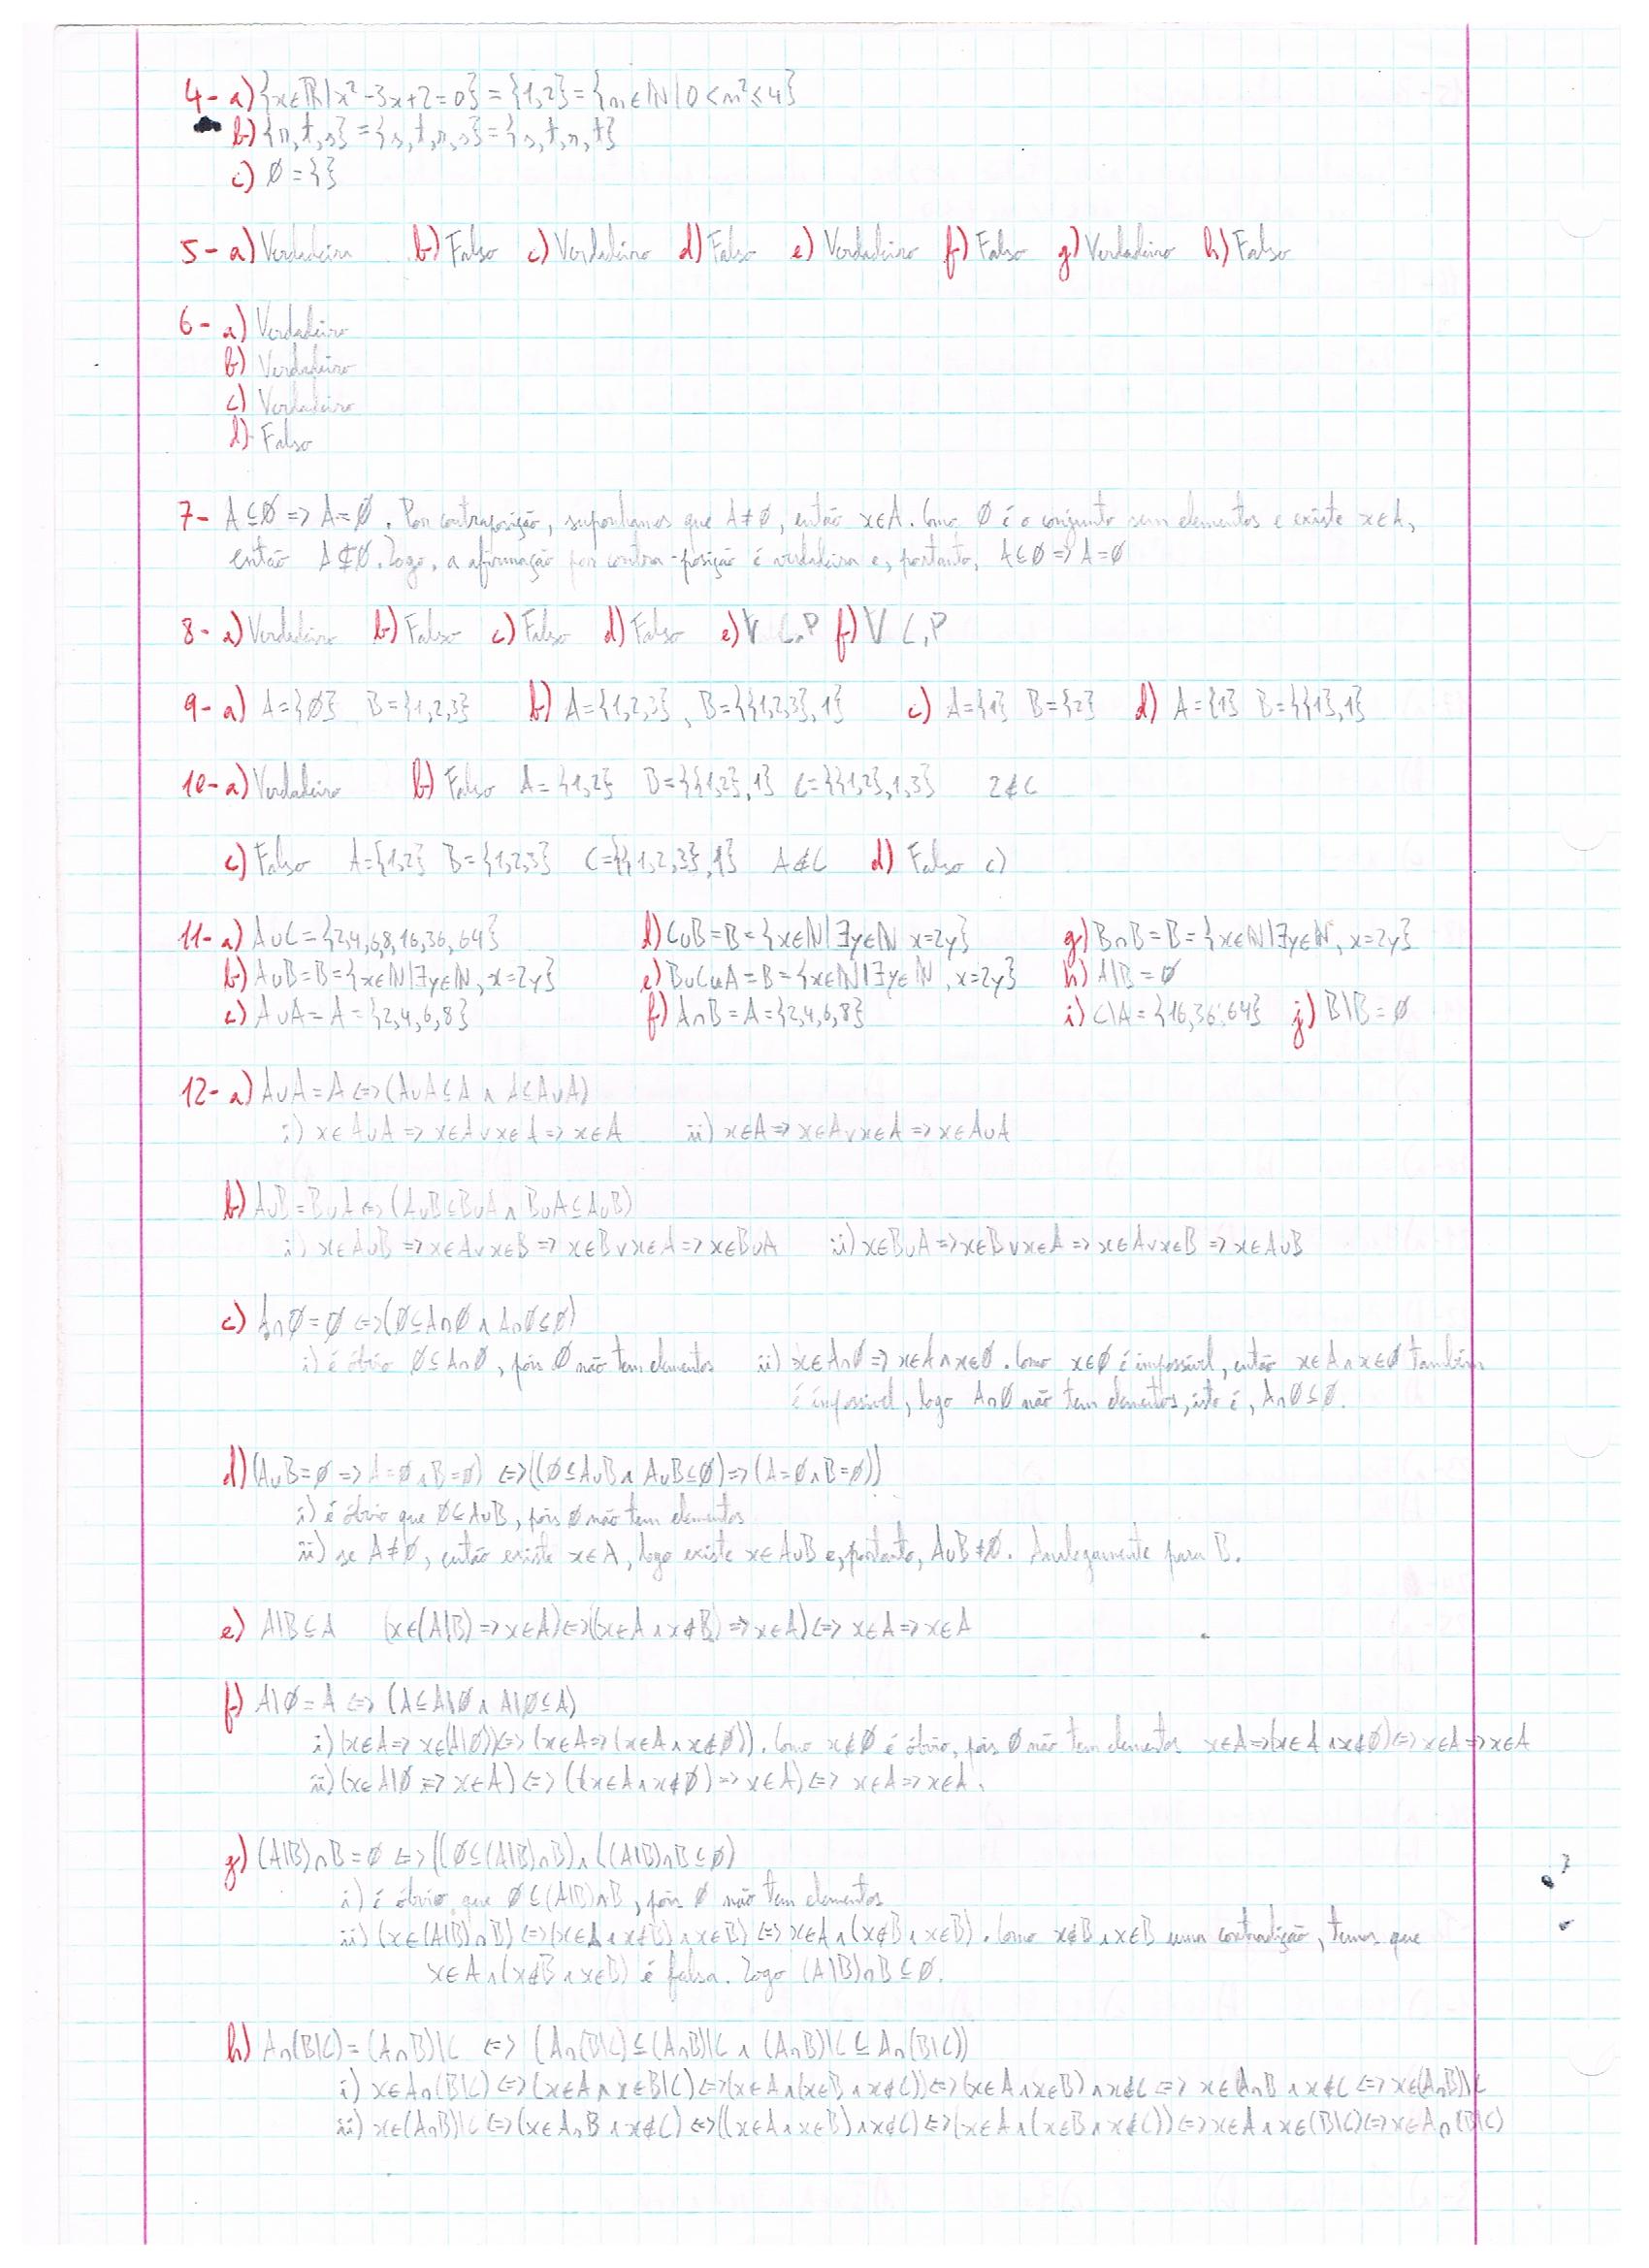 4- a) {x∈ℝ|x²-3x+2=0} = {1,2} = {n∈ℕ|0<n²≤4}
b) {r,t,s} = {s,t,r,s} = {s,t,r,t}
c) ∅ = {}
5- a) Verdadeira b) Falso c) Verdadeiro d) Falso e) Verdadeiro f) Falso g) Verdadeiro h) Falso
6- a) Verdadeiro
b) Verdadeiro
c) Verdadeiro
d) Falso
7- A⊆∅ => A=∅. Por contraposição, suponhamos que A≠∅, então x∈A. Como ∅ é o conjunto sem elementos e existe x∈A,
então A⊈∅. Logo, a afirmação por contra-posição é verdadeira e, portanto, A⊆∅ => A=∅
8- a) Verdadeiro b) Falso c) Falso d) Falso e) V C,P f) V C,P
9- a) A={∅} B={1,2,3} b) A={1,2,3}, B={{1,2,3},1} c) A={1} B={2} d) A={1} B={{1},1}
10- a) Verdadeiro b) Falso A={1,2} B={{1,2},1} C={{1,2},1,3} 2∉C
c) Falso A={1,2} B={1,2,3} C={{1,2,3},1} A∉C d) Falso c)
11- a) A∪C={2,4,6,8,16,36,64} d) C∪B=B={x∈ℕ|∃y∈ℕ x=2y} g) B∩B=B={x∈ℕ|∃y∈ℕ, x=2y}
b) A∪B=B={x∈ℕ|∃y∈ℕ, x=2y} e) B∪C∪A=B={x∈ℕ|∃y∈ℕ, x=2y} h) A\B=∅
c) A∪A=A={2,4,6,8} f) A∩B=A={2,4,6,8} i) C\A={16,36,64} j) B\B=∅
12- a) A∪A=A <=> (A∪A⊆A ∧ A⊆A∪A)
i) x∈A∪A => x∈A∨x∈A => x∈A ii) x∈A => x∈A∨x∈A => x∈A∪A
b) A∪B=B∪A <=> (A∪B⊆B∪A ∧ B∪A⊆A∪B)
i) x∈A∪B => x∈A∨x∈B => x∈B∨x∈A => x∈B∪A ii) x∈B∪A => x∈B∨x∈A => x∈A∨x∈B => x∈A∪B
c) A∩∅=∅ <=> (∅⊆A∩∅ ∧ A∩∅⊆∅)
i) é óbvio ∅⊆A∩∅, pois ∅ não tem elementos ii) x∈A∩∅ => x∈A∧x∈∅. Como x∈∅ é impossível, então x∈A∧x∈∅ também
é impossível, logo A∩∅ não tem elementos, isto é, A∩∅⊆∅.
d) (A∪B=∅ => A=∅∧B=∅) <=> ((∅⊆A∪B∧ A∪B⊆∅) => (A=∅∧B=∅))
i) é óbvio que ∅⊆A∪B, pois ∅ não tem elementos
ii) se A≠∅, então existe x∈A, logo existe x∈A∪B e, portanto, A∪B≠∅. Analogamente para B.
e) A\B⊆A (x∈(A\B) => x∈A) <=> ((x∈A∧x∉B) => x∈A) <=> x∈A => x∈A
f) A\∅=A <=> (A⊆A\∅ ∧ A\∅⊆A)
i) (x∈A => x∈(A\∅)) <=> (x∈A => (x∈A∧x∉∅)). Como x∉∅ é óbvio, pois ∅ não tem elementos x∈A => (x∈A∧x∉∅) <=> x∈A => x∈A
ii) (x∈A\∅ => x∈A) <=> ((x∈A∧x∉∅) => x∈A) <=> x∈A => x∈A.
g) (A\B)∩B=∅ <=> ((∅⊆(A\B)∩B)∧((A\B)∩B⊆∅)
i) é óbvio que ∅⊆(A\B)∩B, pois ∅ não tem elementos
ii) (x∈(A\B)∩B) <=> (x∈A∧x∉B)∧x∈B) <=> x∈A∧(x∉B∧x∈B). Como x∉B∧x∈B uma contradição, temos que
x∈A∧(x∉B∧x∈B) é falsa. Logo (A\B)∩B⊆∅.
h) A∩(B\C)=(A∩B)\C <=> (A∩(B\C)⊆(A∩B)\C ∧ (A∩B)\C⊆A∩(B\C))
i) x∈A∩(B\C) <=> (x∈A∧x∈B\C) <=> (x∈A∧(x∈B∧x∉C)) <=> (x∈A∧x∈B)∧x∉C <=> x∈A∩B∧x∉C <=> x∈(A∩B)\C
ii) x∈(A∩B)\C <=> (x∈A∩B∧x∉C) <=> ((x∈A∧x∈B)∧x∉C) <=> (x∈A∧(x∈B∧x∉C)) <=> x∈A∧x∈(B\C) <=> x∈A∩(B\C)